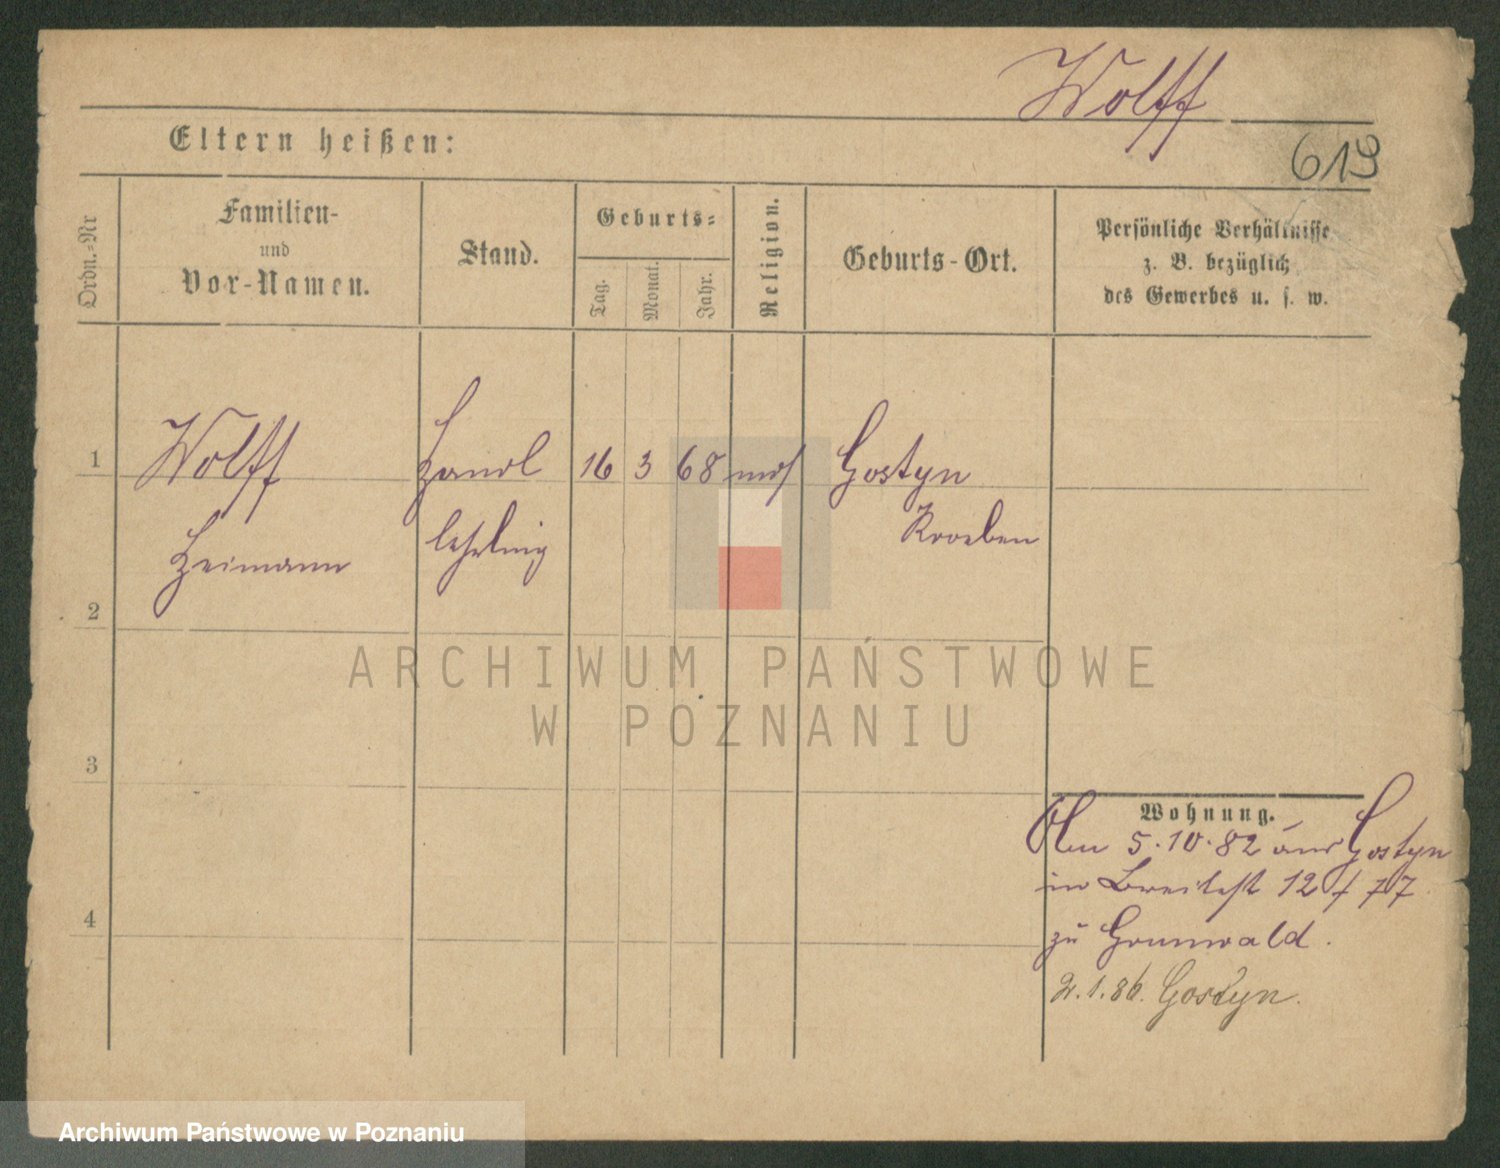 Wolff
Eltern heißen:
619
Ordn.-Nr
Familien-
und
Vor-Namen.
Stand.
Geburts-
Tag.
Monat.
Jahr.
Religion.
Geburts-Ort.
Persönliche Verhältnisse
z. B. bezüglich
des Gewerbes u. s. w.
1
Wolff
Handl
16
3
68
mos
Gostyn
Kroeben
Heimann
lehrling
2
ARCHIWUM PAŃSTWOWE
W POZNANIU
3
Wohnung.
Am 5.10.82 aus Gostyn
in Breitestr 12
zu Grunwald.
4
2.1.86. Gostyn.
Archiwum Państwowe w Poznaniu